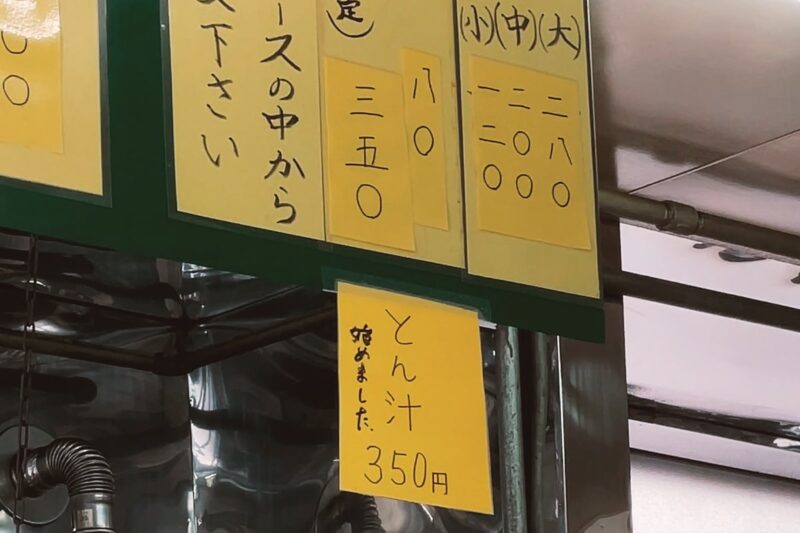 (小)(中)(大)
二八〇
二〇〇
一二〇
定)
八〇
三五〇
ースの中から
下さい
〇
とん汁
始めました、
350円